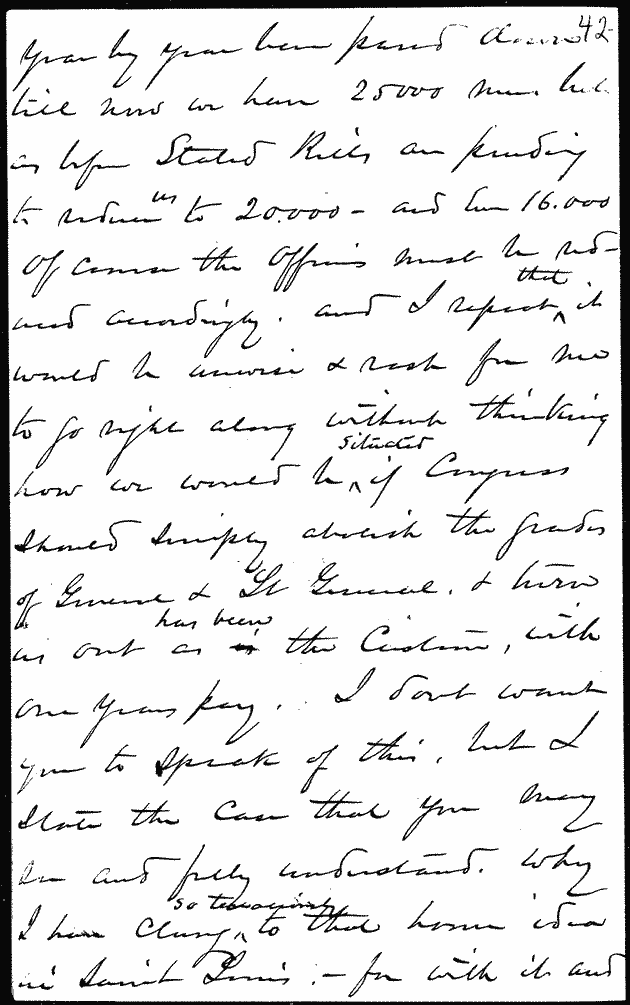 42
year by year been pared down
till now we have 25000 men but
as before Stated Bills are pending
to reduce us to 20.000 - and even 16.000
Of course the Officers must be red-
uced accordingly. and I repeat that it
would be unwise & rash for me
to go right along without thinking
how we would be situated if Congress
should simply abolish the grades
of General & Lt General. & turn
us out as has been the Custom, with
one years pay. I dont want
you to speak of this, but I
state the Case that you may
see and fully understand. Why
I have Clung so tenaciously to that home idea
in Saint Louis. - for with it and